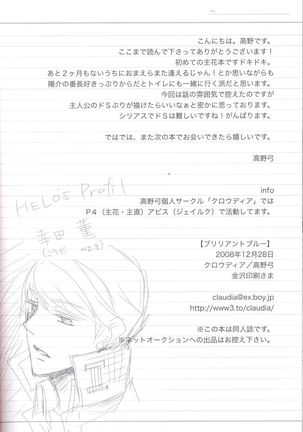 こんにちは。高野です。
ここまで読んで下さってありがとうございます！
初めての主花本ですドキドキ。
あと２ヶ月もないうちにおまえらまた逢えるじゃん！とか思いながらも
陽介の番長好きっぷりからだとトイレにも一緒に行く派だと思います。
今回は話の雰囲気で控えたのですが
主人公のドＳぶりが描けたらいいなぁと密かに思っております。
シリアスでドＳは難しいですね！がんばります。
ではでは、また次の本でお会いできたら嬉しいです。
高野弓
info
高野弓個人サークル「クロウディア」では
Ｐ４（主花・主直）アビス（ジェイルク）で活動してます。
HELO's Profil
幸田 薫
【ブリリアントブルー】
2008年12月28日
クロウディア／高野弓
金沢印刷さま
claudia@ex.boy.jp
http://www3.to/claudia/
※この本は同人誌です。
※ネットオークションへの出品はお控え下さい。